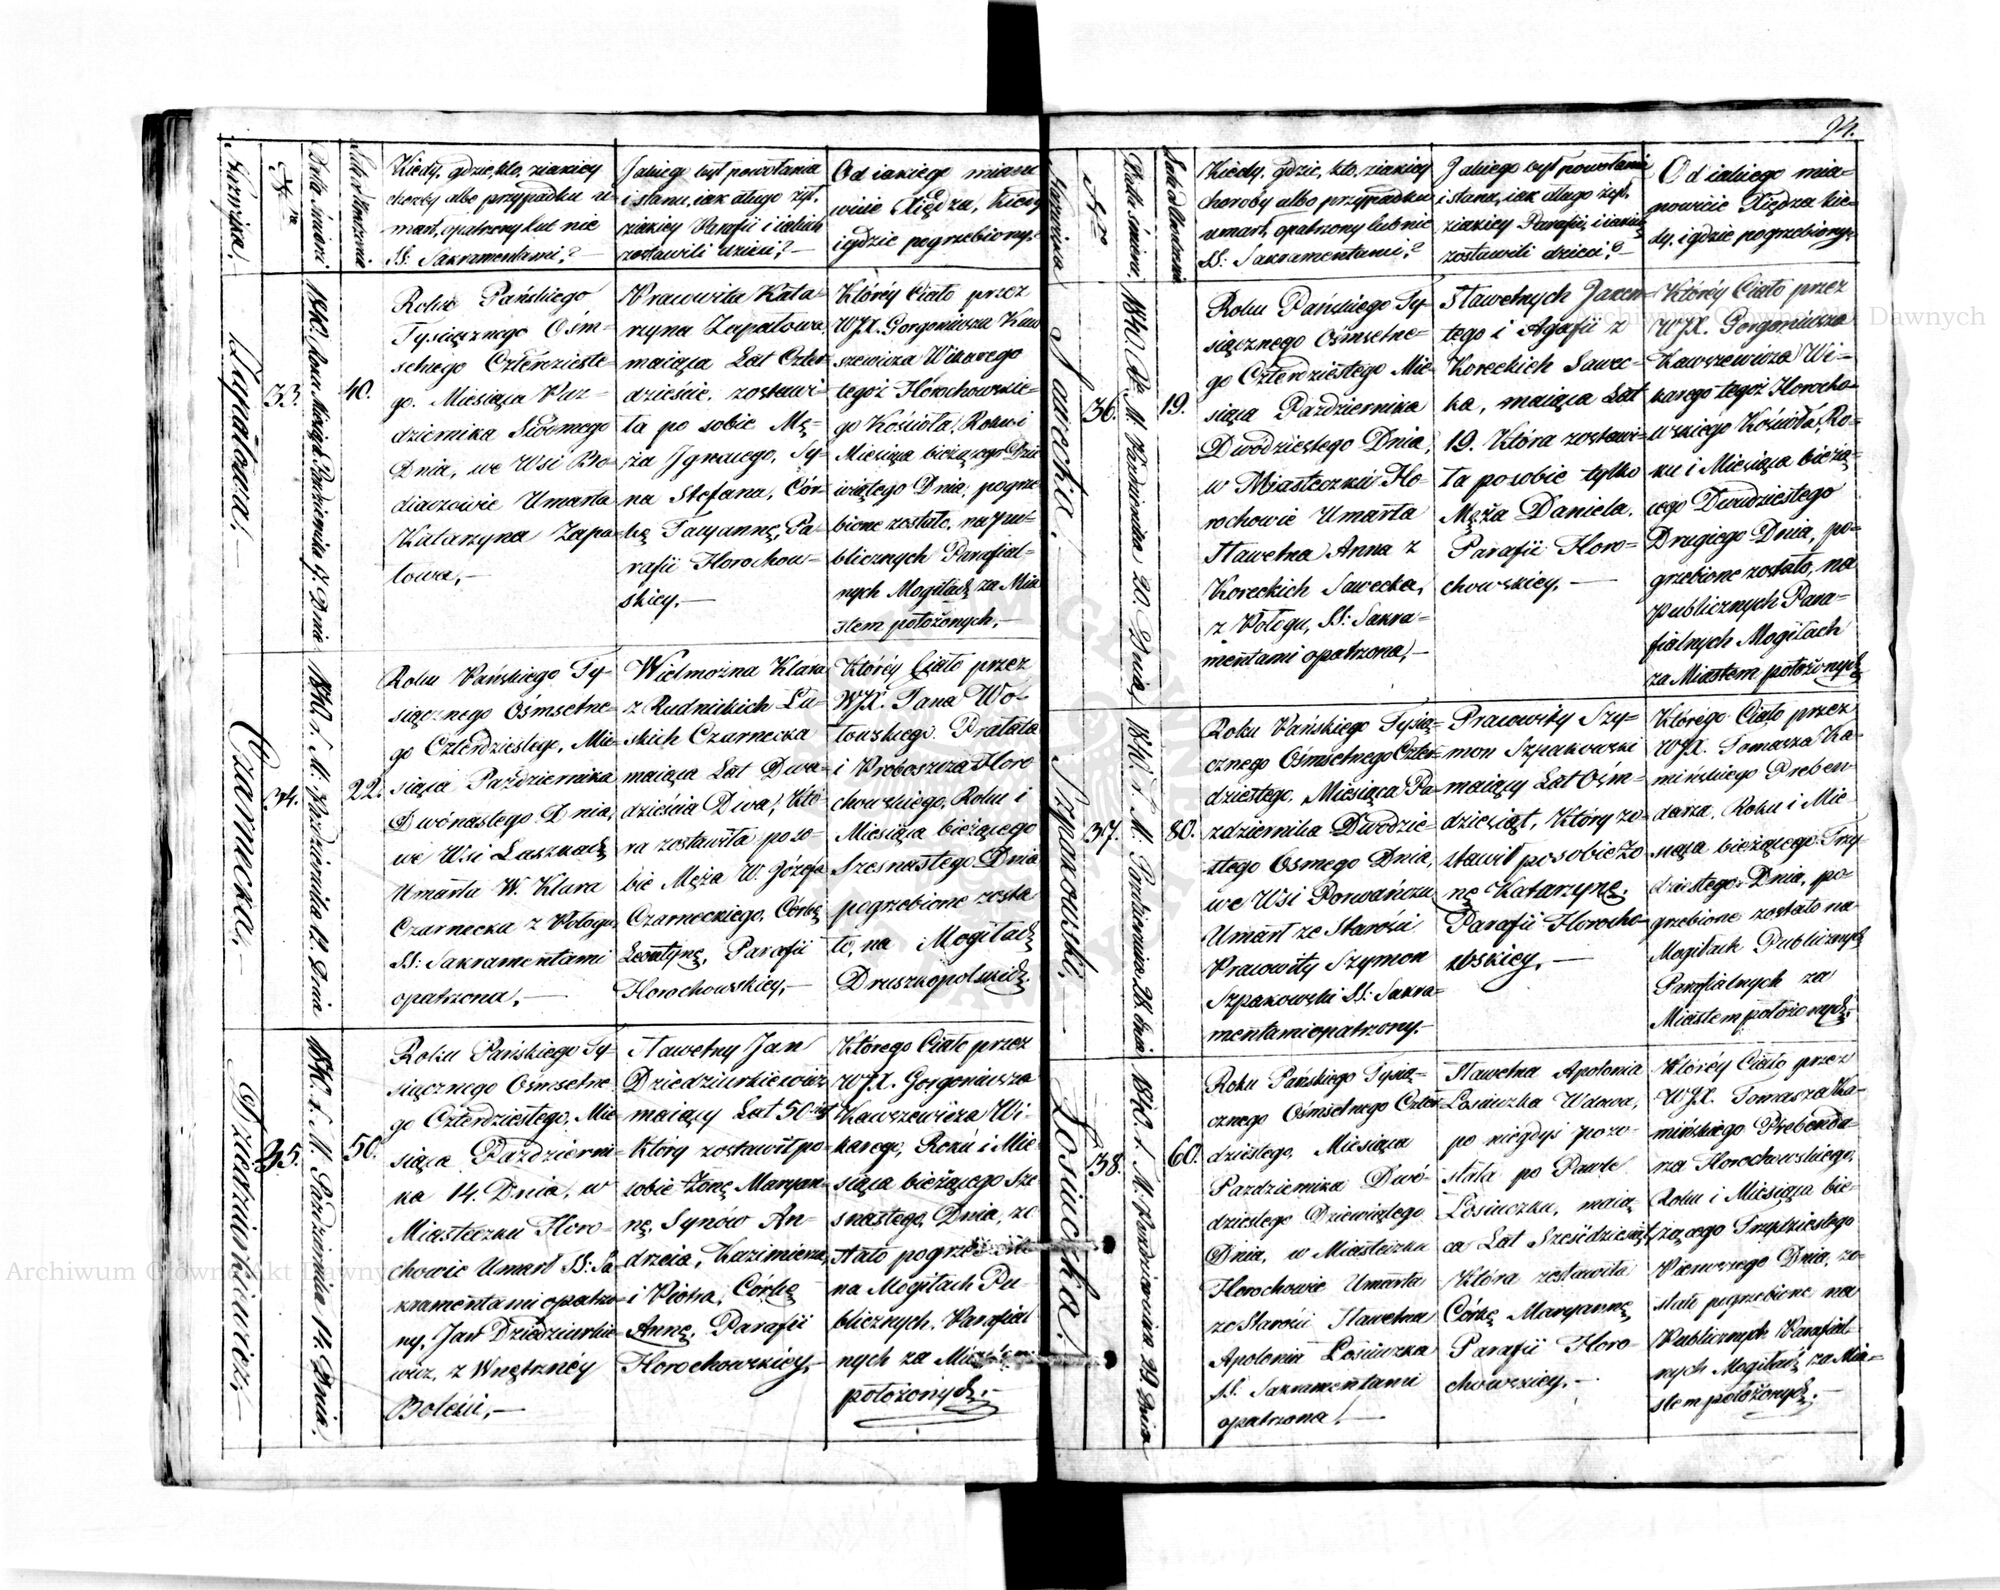 94.
Nazwiska.
Nro
Data śmierci.
Lata Umarłenia
Kiedy, gdzie, kto, z iakiey
choroby albo przypadku u-
marł, opatrzony lub nie
SS: Sakramentami?—
Jakiego był powołania
i stanu, iak długo żył,
z iakiey Parafii i iakich
zostawili dzieci?—
Od iakiego miano
wicie Xiędza, kiedy
i gdzie pogrzebiony.
Zapałowa.—
33.
1840. Roku Miesiąca Października 7. Dnia
40.
Roku Pańskiego
Tysiącznego Ośm-
setnego Czterdzieste-
go. Miesiąca Paz-
dziernika Siódmego
Dnia, we Wsi Bo-
diaczowie Umarła
Katarzyna Zapa-
łowa,—
Pracowita Kata-
rzyna Zapałowa,
maiąca Lat Czter-
dzieście, zostawi-
ła po sobie Mę-
ża Ignacego, Sy-
na Stefana, Cór-
kę Tacyannę, Pa-
rafii Horochow-
skiey.—
Któréy Ciało przez
WJX. Gorgoniusza Kaw
szewicza Wikarego
tegoż Horochowskie-
go Kościoła, Roku i
Miesiąca bieżącego Dzie
wiątego Dnia, pogrze
bione zostało, na Pu-
blicznych Parafial-
nych Mogiłach za Mia
stem położonych.—
Czarnecka.—
34.
1840. r. M. Października 12. Dnia
22.
Roku Pańskiego Ty-
siącznego Ośmsetne-
go Czterdziestego, Mie-
siąca Października
Dwónastego Dnia,
we Wsi Łaszkach
Umarła W. Klara
Czarnecka z Połogu,
SS: Sakramentami
opatrzona,—
Wielmożna Klara
z Rudnickich Lu-
skich Czarnecka
maiąca Lat Dwa-
dzieścia Dwa, Któ-
ra zostawiła po so-
bie Męża W. Józefa
Czarneckiego, Córkę
Leontynę, Parafii
Horochowskiey,—
Któréy Ciało przez
WJX. Jana Wo-
łowskiego Prałata
i Proboszcza Horo
chowskiego, Roku i
Miesiąca bieżącego
Szesnastego Dnia
pogrzebione zosta
ło, na Mogiłach
Druszkopolskich.
Dziedziurkiewicz.—
35.
1840. r. M. Października 14. Dnia.
50.
Roku Pańskiego Ty-
siącznego Ośmsetne
go Czterdziestego, Mie-
siąca Październi-
na 14. Dnia, w
Miasteczku Horo-
chowie Umarł SS: Sa-
kramentami opatrzo-
ny, Jan Dziedziurkie-
wicz, z Wnętrznéy
Boleści,—
Sławetny Jan
Dziedziurkiewicz
maiący Lat 50.
Który zostawił po-
sobie Żonę Maryan-
nę, Synów An-
drzeia, Kazimierza,
i Piotra, Córkę
Annę, Parafii
Horochowskiey,—
Którego Ciało przez
WJX. Gorgoniusza
Kawszewicza Wi-
karego, Roku i Mie-
siąca bieżącego Sze-
snastego Dnia, zo
stało pogrzebione
na Mogiłach Pu-
blicznych Parafial
nych za Miastem
położonych.—
Nazwiska
Nro
Data śmierci.
Kiedy, gdzie, kto, z iakiey
choroby albo przypadku
umarł, opatrzony lub nie
SS: Sakramentami?
Jakiego był powołania
i stanu, iak długo żył,
z iakiey Parafii, i iakich
zostawili dzieci?—
Od iakiego mia-
nowicie Xiędza kie-
dy, i gdzie pogrzebiony.
Sawecka.
36.
1840. r. M. Października 20. Dnia
19.
Roku Pańskiego Ty-
siącznego Ośmsetne-
go Czterdziestego Mie-
siąca Października
Dwódziestego Dnia,
w Miasteczku Ho-
rochowie Umarła
Sławetna Anna z
Koreckich Sawecka,
z Połogu, SS: Sakra-
mentami opatrzona,—
Sławetnych Jaxen-
tego i Agafii z
Koreckich Sawec-
ka, maiąca Lat
19. Która zostawi-
ła po sobie tylko
Męża Daniela.
Parafii Horo-
chowskiey.—
Któréy Ciało przez
WJX. Gorgoniusza
Kawszewicza Wi-
karego tegoż Horocho-
wskiégo Kościoła, Ro-
ku i Miesiąca bieżą-
cego Dwudziestego
Drugiego Dnia, po-
grzebione zostało, na
Publicznych Para-
fialnych Mogiłach
za Miastem położonych
Szpakowski.—
37.
1840. r. M. Października 28. Dnia
80.
Roku Pańskiego Tysią-
cznego Ośmsetnego Czter-
dziestego, Miesiąca Pa-
zdziernika Dwódzie-
stego Ósmego Dnia,
we Wsi Porwańczu
Umarł ze Starości
Pracowity Szymon
Szpakowski SS: Sakra-
mentami opatrzony.—
Pracowity Szy-
mon Szpakowski
maiący Lat Ośm-
dziesiąt, Który zo-
stawił po sobie Żo
nę Katarzynę.
Parafii Horocho-
wskiey,—
Którego Ciało przez
WJX. Tomasza Ka-
mińskiego Preben-
darza, Roku i Mie-
siąca bieżącego Trzy-
dziestego Dnia, po-
grzebione zostało na
Mogiłach Publicznych
Parafialnych za
Miastem położonych.
Łosiuczka.
38.
1840. r. M. Października 29. Dnia
60.
Roku Pańskiego Tysią-
cznego Ośmsetnego Czter-
dziestego, Miesiąca
Pazdziernika Dwó-
dziestego Dziewiątego
Dnia, w Miasteczku
Horochowie Umarła
ze Starości Sławetna
Apolonia Łosiuczka
SS: Sakramentami
opatrzona!—
Sławetna Apolonia
Łosiuczka Wdowa,
po niegdyś pozo-
stała po Pawle
Łosiuczku, maią
ca Lat Sześćdziesiąt
Która zostawiła
Córkę Maryannę
Parafii Horo-
chowskiey.—
Któréy Ciało przez
WJX. Tomasza Ka-
mińskiego Prebenda-
rza Horochowskiego,
Roku i Miesiąca bie-
żącego Trzydziestego
Pierwszego Dnia, zo-
stało pogrzebione na
Publicznych Parafial-
nych Mogiłach za Mia-
stem położonych.—
Archiwum Główne Akt Dawnych
Archiwum Główne Akt Dawnych